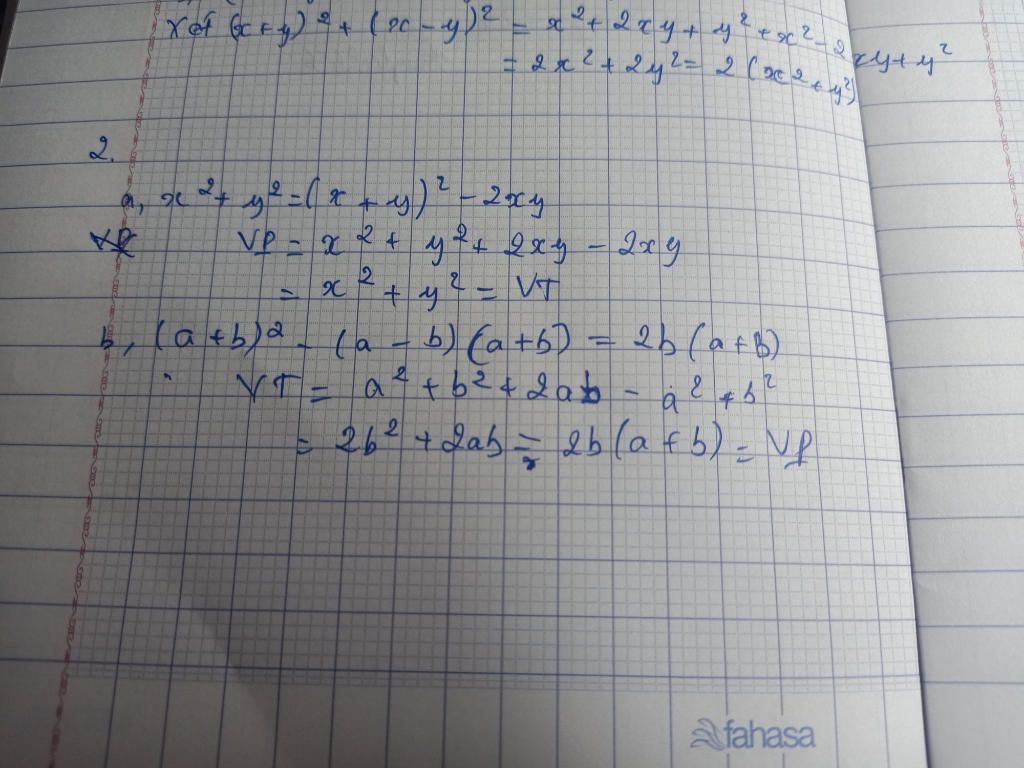 Xét (x+y)² + (x - y)² = x² + 2xy + y² + x² - 2xy + y²
= 2x² + 2y² = 2(x² + y²)
2.
a, x² + y² = (x + y)² - 2xy
VP = x² + y² + 2xy - 2xy
= x² + y² = VT
b, (a+b)² - (a - b)(a+b) = 2b(a+b)
VT = a² + b² + 2ab - a² + b²
= 2b² + 2ab = 2b(a+b) = VP
fahasa